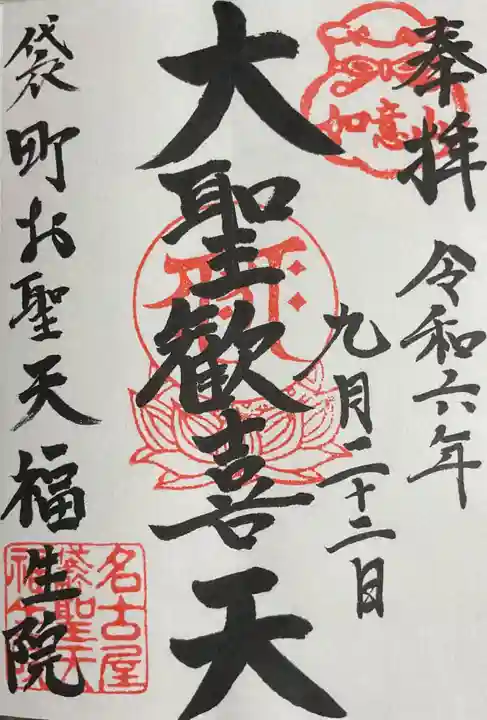 奉拝
令和六年
九月二十二日
大聖歓喜天
袋町お聖天福生院
如意山
名古屋
袋町聖天
福生院